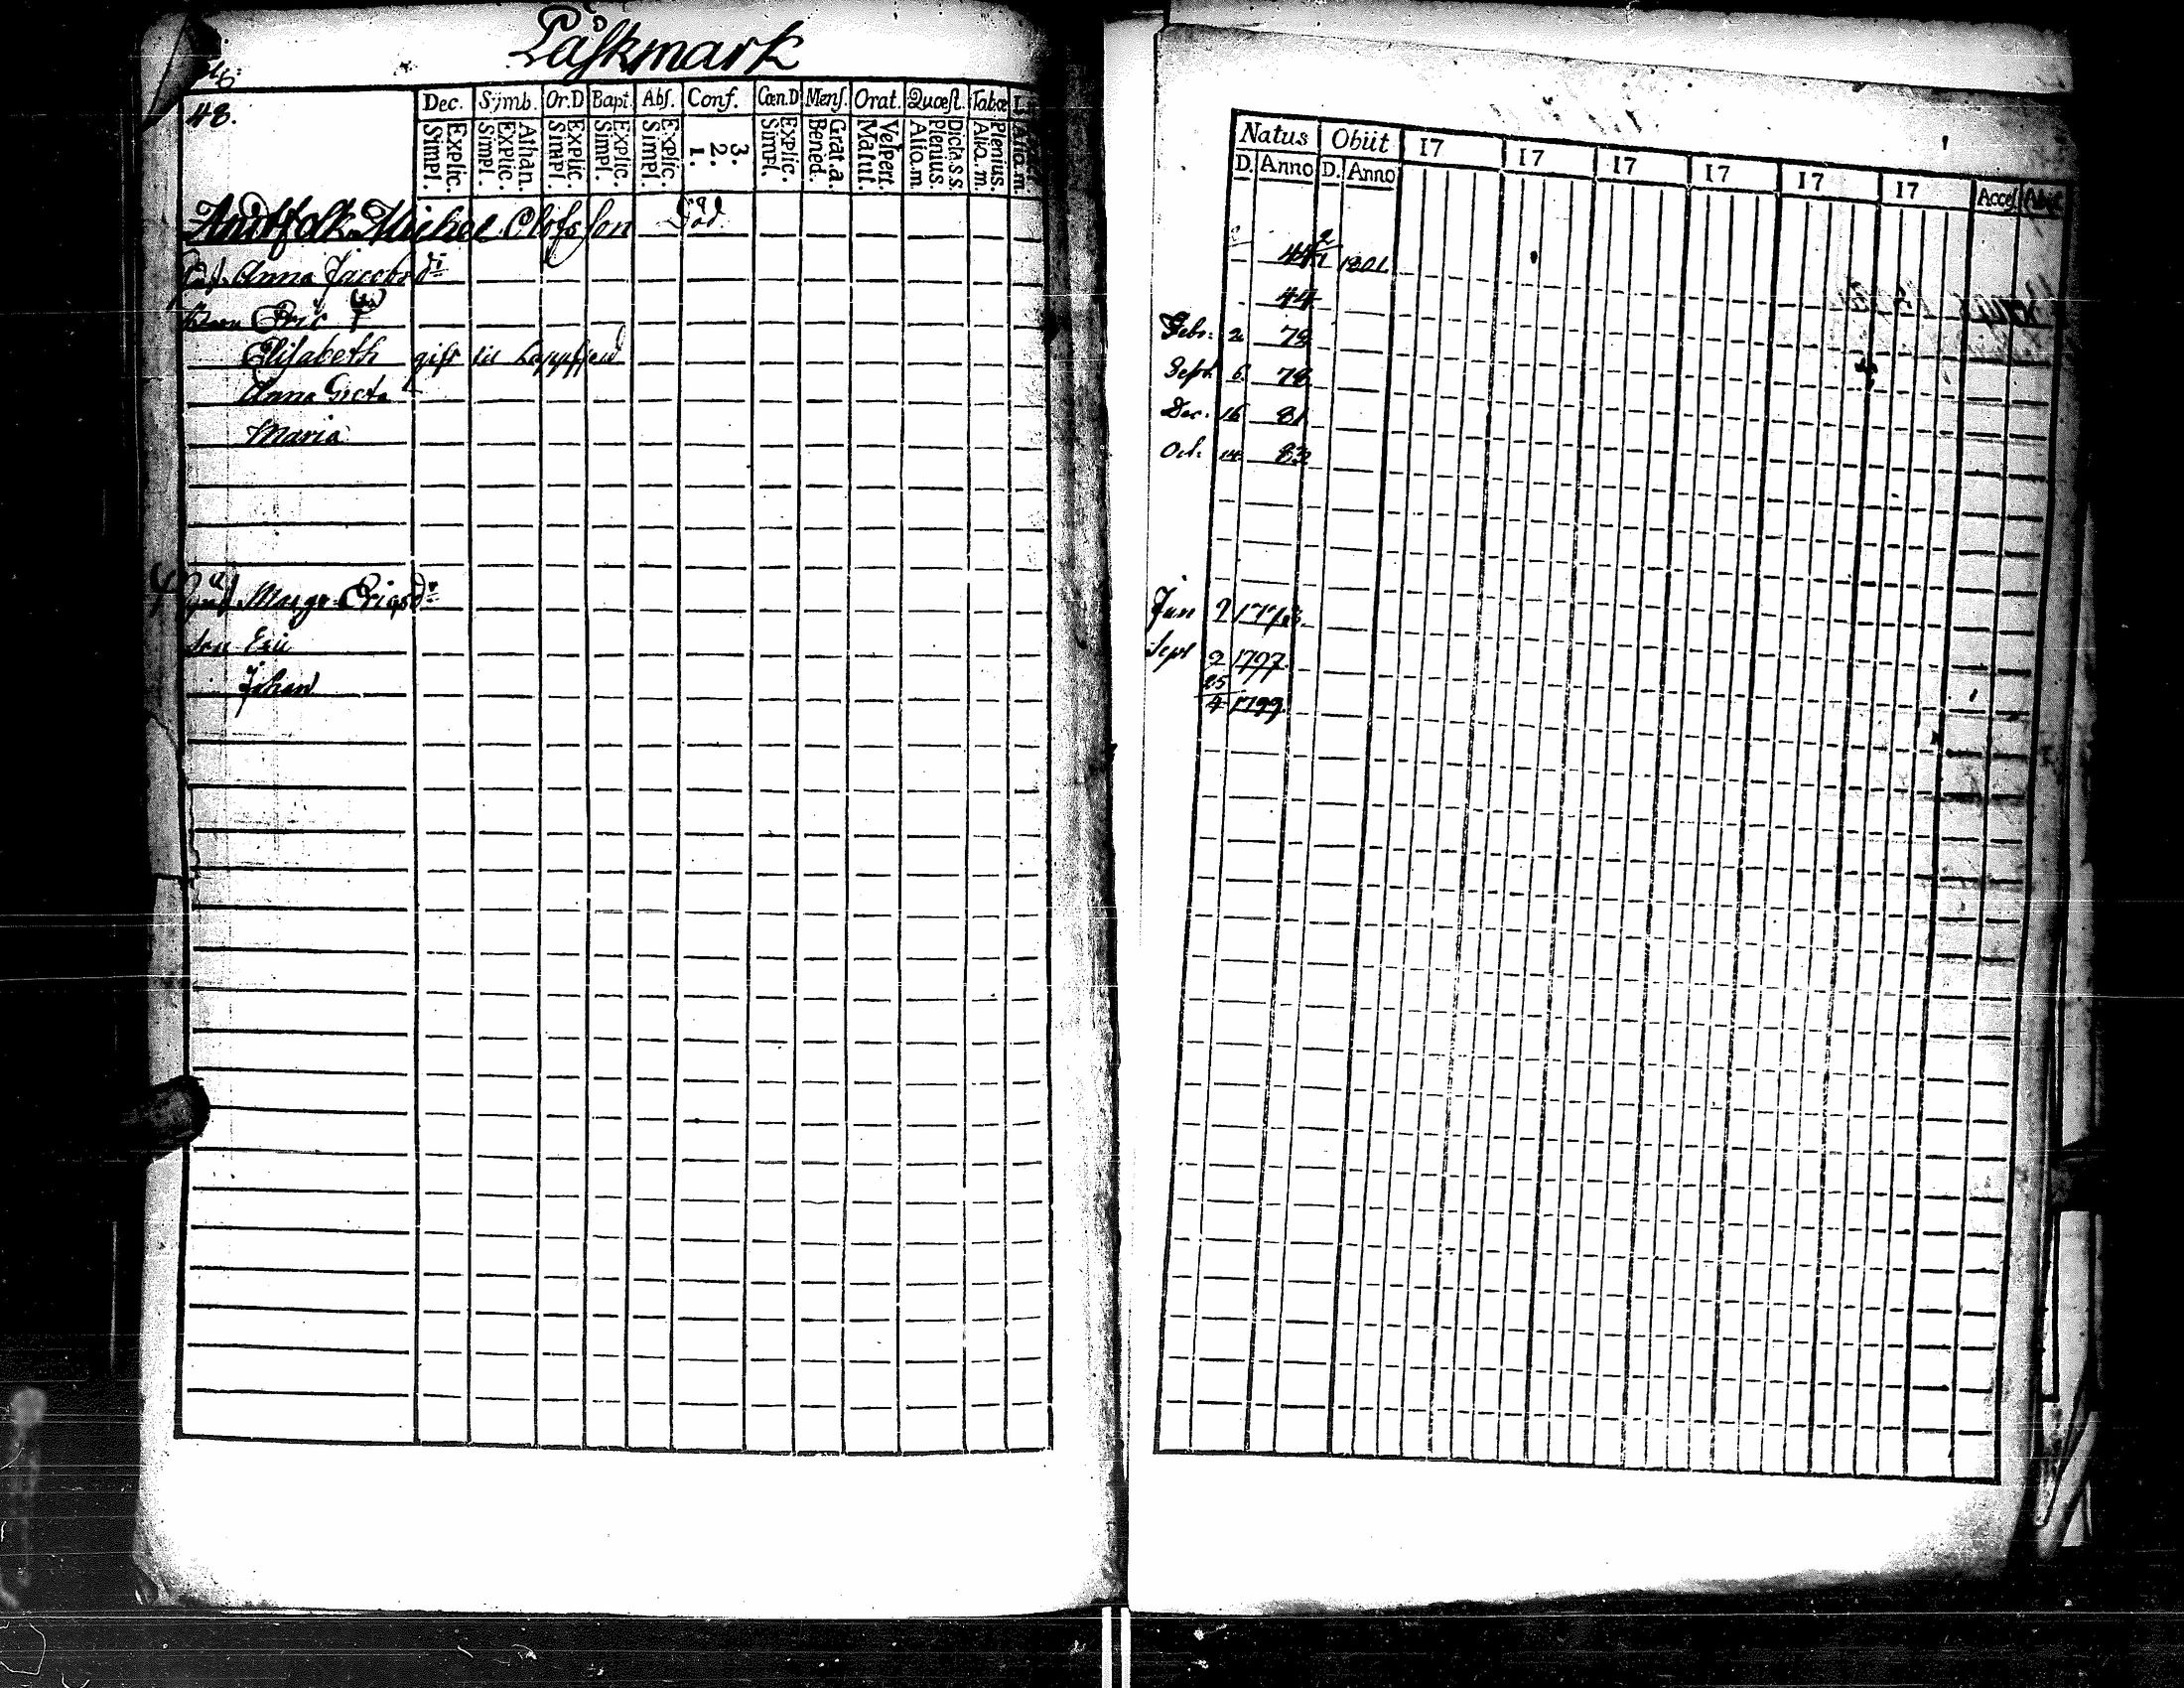 Påskmark
48.
Dec. Symb. Or.D Bapt. Abs. Conf. Cœn.D Mens. Orat. Quæst. Tabœ
Explic. Simpl. Athan. Explic. Simpl. Explic. Simpl. Explic. Simpl. Explic. Simpl. 3. 2. 1. Explic. Simpl. Grat.a. Bened. Vespert. Matut. Dicta.s.s. Plenius. Alio.m. Plenius. Alio.m.
Natus Obiit 17 17 17 17 17 17
D. Anno D. Anno Acces. Abiit
Andtfolk Michel Olofsson Död 44 2/1 1801
Anna Jacobsd:r 44
Eric Febr: 2 78
Elisabeth gift til Lappfjerd Sept. 6 78
Anna Greta Dec. 16 81
Maria Oct: 83
Margr. Erigsd:r Jun 9
son Eric Sept 2 1797
Johan 25/4 1799